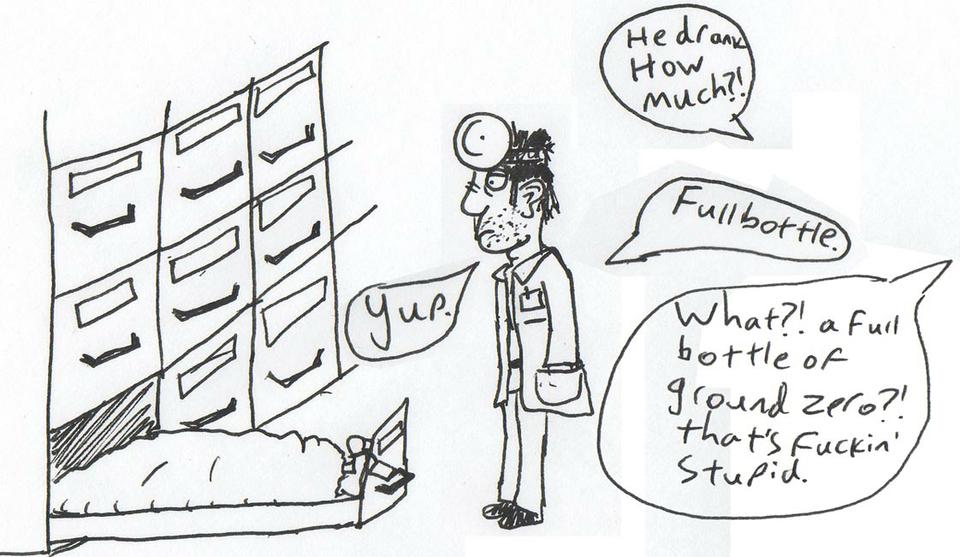 He drank
How
much?!
Full bottle.
Yup.
What?! a full
bottle of
ground zero?!
that's Fuckin'
Stupid.